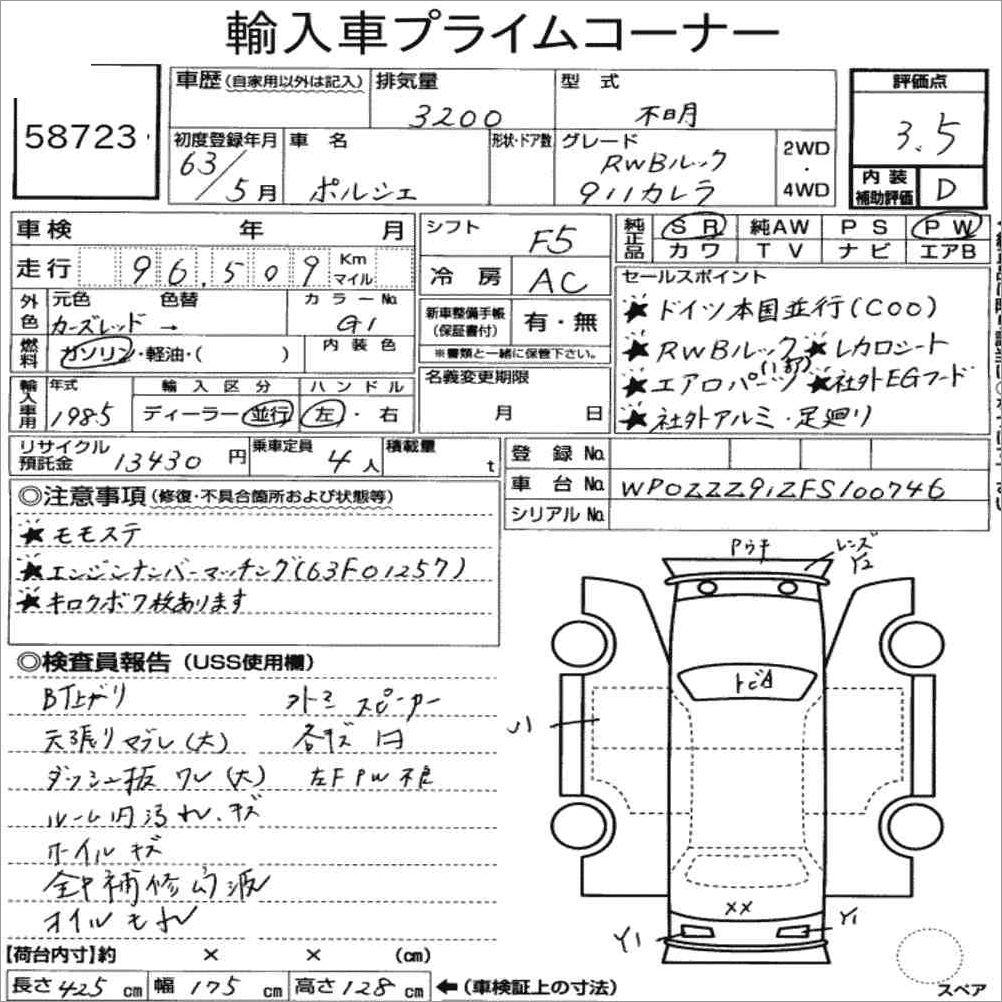 輸入車プライムコーナー
58723
車歴(自家用以外は記入)
排気量
3200
型式
不明
評価点
3.5
初度登録年月
63/5月
車名
ポルシェ
形状・ドア数
グレード
RWBルック
911カレラ
2WD
・
4WD
内装
補助評価
D
車検 年 月
走行 96,509 Km マイル
シフト F5
冷房 AC
純正品
SR 純AW PS PW
カワ TV ナビ エアB
外色
元色 色替
カーズレッド →
カラーNo.
G1
燃料
ガソリン・軽油・( )
内装色
新車整備手帳
(保証書付)
有・無
※書類と一緒に保管下さい。
セールスポイント
★ドイツ本国並行(COO)
★RWBルック ★レカロシート
★エアロパーツ(1部) ★社外EGフード
★社外アルミ・足廻り
輸入車用
年式
1985
輸入区分
ディーラー 並行
ハンドル
左・右
名義変更期限
月 日
リサイクル預託金 13430円
乗車定員 4人
積載量 t
登録No.
車台No. WPOZZZ91ZFS100746
シリアルNo.
◎注意事項(修復・不具合箇所および状態等)
★モモステ
★エンジンナンバーマッチング(63F01257)
★キロクボ7枚あります
◎検査員報告(USS使用欄)
BT上がり
外ミ スピーカー
天張り (大)
各キズ 凹
ダッシュ板 ワレ(大)
左FPW不良
ルーム内汚れ、キズ
ホイルキズ
全塗補修
オイルモレ
Pウキ
レンズ
Y2
トビA
ハ
XX
Y1
Y1
スペア
【荷台内寸】約 × × (cm)
長さ425cm 幅175cm 高さ128cm ←(車検証上の寸法)